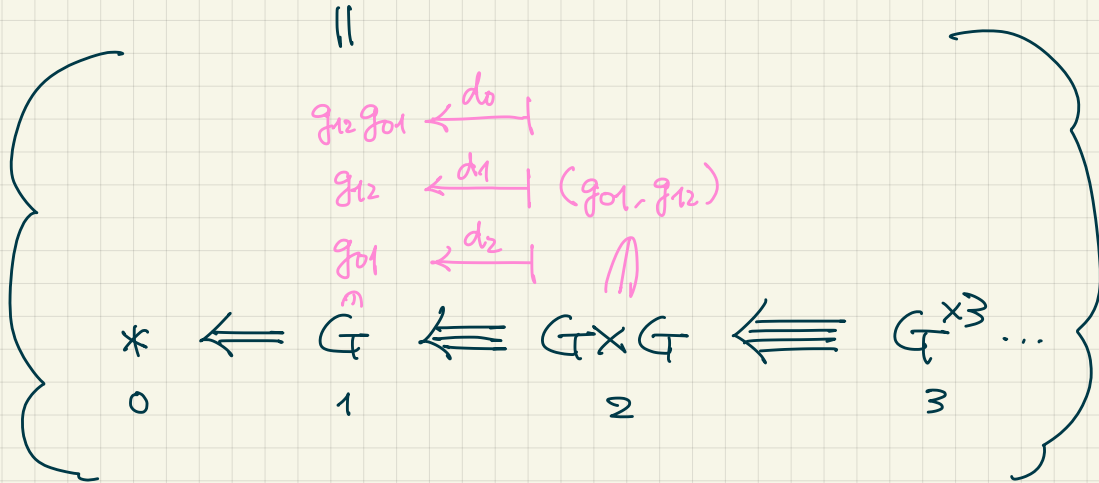 ||
g₁₂g₀₁ ←d₀ |
g₁₂ ←d₁ | (g₀₁, g₁₂)
g₀₁ ←d₂ |
* ⇐ G ⇐ G×G ⇐ G^{×3} ...
0 1 2 3